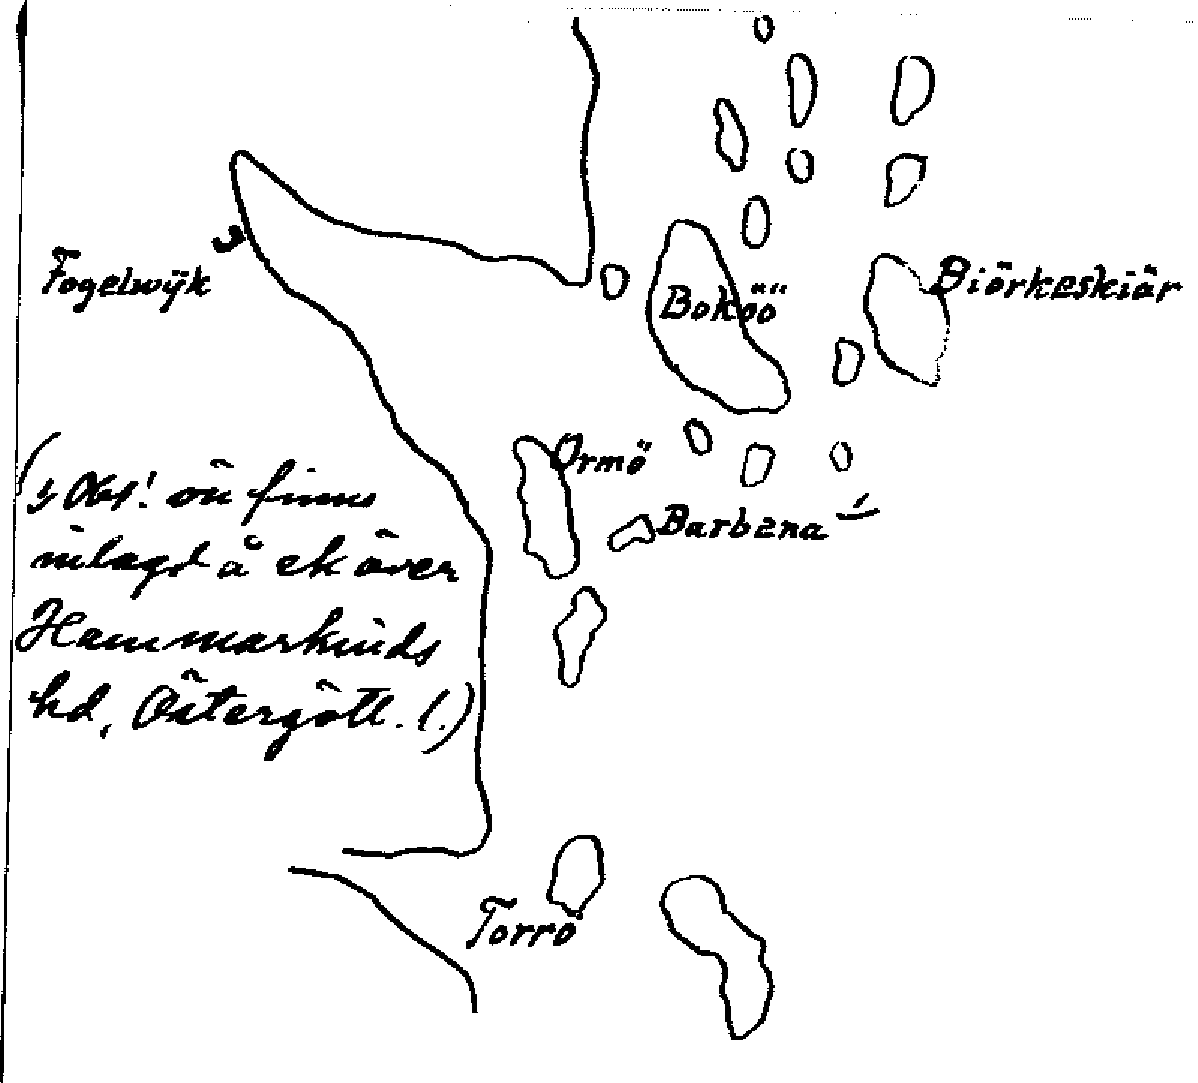 Fogelwÿk
Boköö
Biörkeskiär
Ormö
Barbena
(Obs! ön finns
inlagd å ek över
Hammarkinds
hd, Östergötl. (.)
Torrö